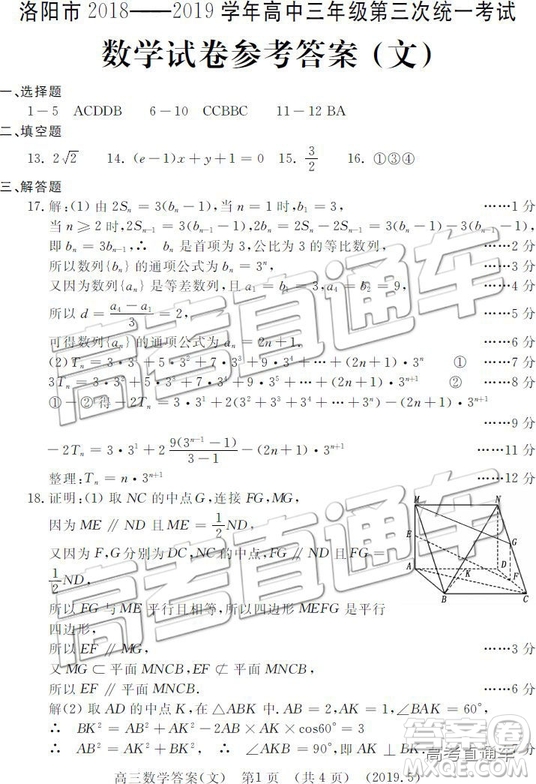 洛阳市 2018——2019 学年高中三年级第三次统一考试
数学试卷参考答案(文)
一、选择题
1-5 ACDDB 6-10 CCBBC 11-12 BA
二、填空题
13. 2√2 14. (e-1)x+y+1=0 15. 3/2 16. ①③④
三、解答题
17. 解:(1) 由 2Sₙ=3(bₙ-1),当 n=1 时,b₁=3, ……1 分
当 n≥2 时,2Sₙ₋₁=3(bₙ₋₁-1),2bₙ=2Sₙ-2Sₙ₋₁=3(bₙ-1)-3(bₙ₋₁-1),
即 bₙ=3bₙ₋₁,∴ bₙ 是首项为 3,公比为 3 的等比数列, ……2 分
所以数列{bₙ} 的通项公式为 bₙ=3ⁿ, ……3 分
又因为数列{aₙ} 是等差数列,且 a₁=b₁=3,a₄=b₂=9, ……4 分
所以 d=(a₄-a₁)/3=2, ……5 分
可得数列{aₙ} 的通项公式为 aₙ=2n+1, ……6 分
(2)Tₙ=3·3¹+5·3²+7·3³+9·3⁴+…+(2n+1)·3ⁿ ① ……7 分
3Tₙ=3·3²+5·3³+7·3⁴+9·3⁵+…+(2n+1)·3ⁿ⁺¹ ② ……8 分
①-②得-2Tₙ=3·3¹+2(3²+3³+3⁴+…+3ⁿ)-(2n+1)·3ⁿ⁺¹
……9 分
-2Tₙ=3·3¹+2 9(3ⁿ⁻¹-1)/(3-1) -(2n+1)·3ⁿ⁺¹ ……11 分
整理:Tₙ=n·3ⁿ⁺¹ ……12 分
18. 证明:(1) 取 NC 的中点 G,连接 FG,MG,
因为 ME∥ND 且 ME=1/2 ND,
又因为 F,G 分别为 DC,NC 的中点,FG∥ND 且 FG=
1/2 ND,
所以 FG 与 ME 平行且相等,所以四边形 MEFG 是平行
四边形,
所以 EF∥MG, ……3 分
又 MG⊂平面 MNCB,EF⊄平面 MNCB,
所以 EF∥平面 MNCB. ……6 分
M
N
E
G
A
D
K
F
B
C
解(2) 取 AD 的中点 K,在 △ABK 中,AB=2,AK=1,∠BAK=60°,
∴ BK²=AB²+AK²-2AB×AK×cos60°=3
∴ AB²=AK²+BK²,∴∠AKB=90°,
高三数学答案(文) 第1页 (共4页) (2019.5)
高考直通车
高考直通车
高考直通车
高考直通车